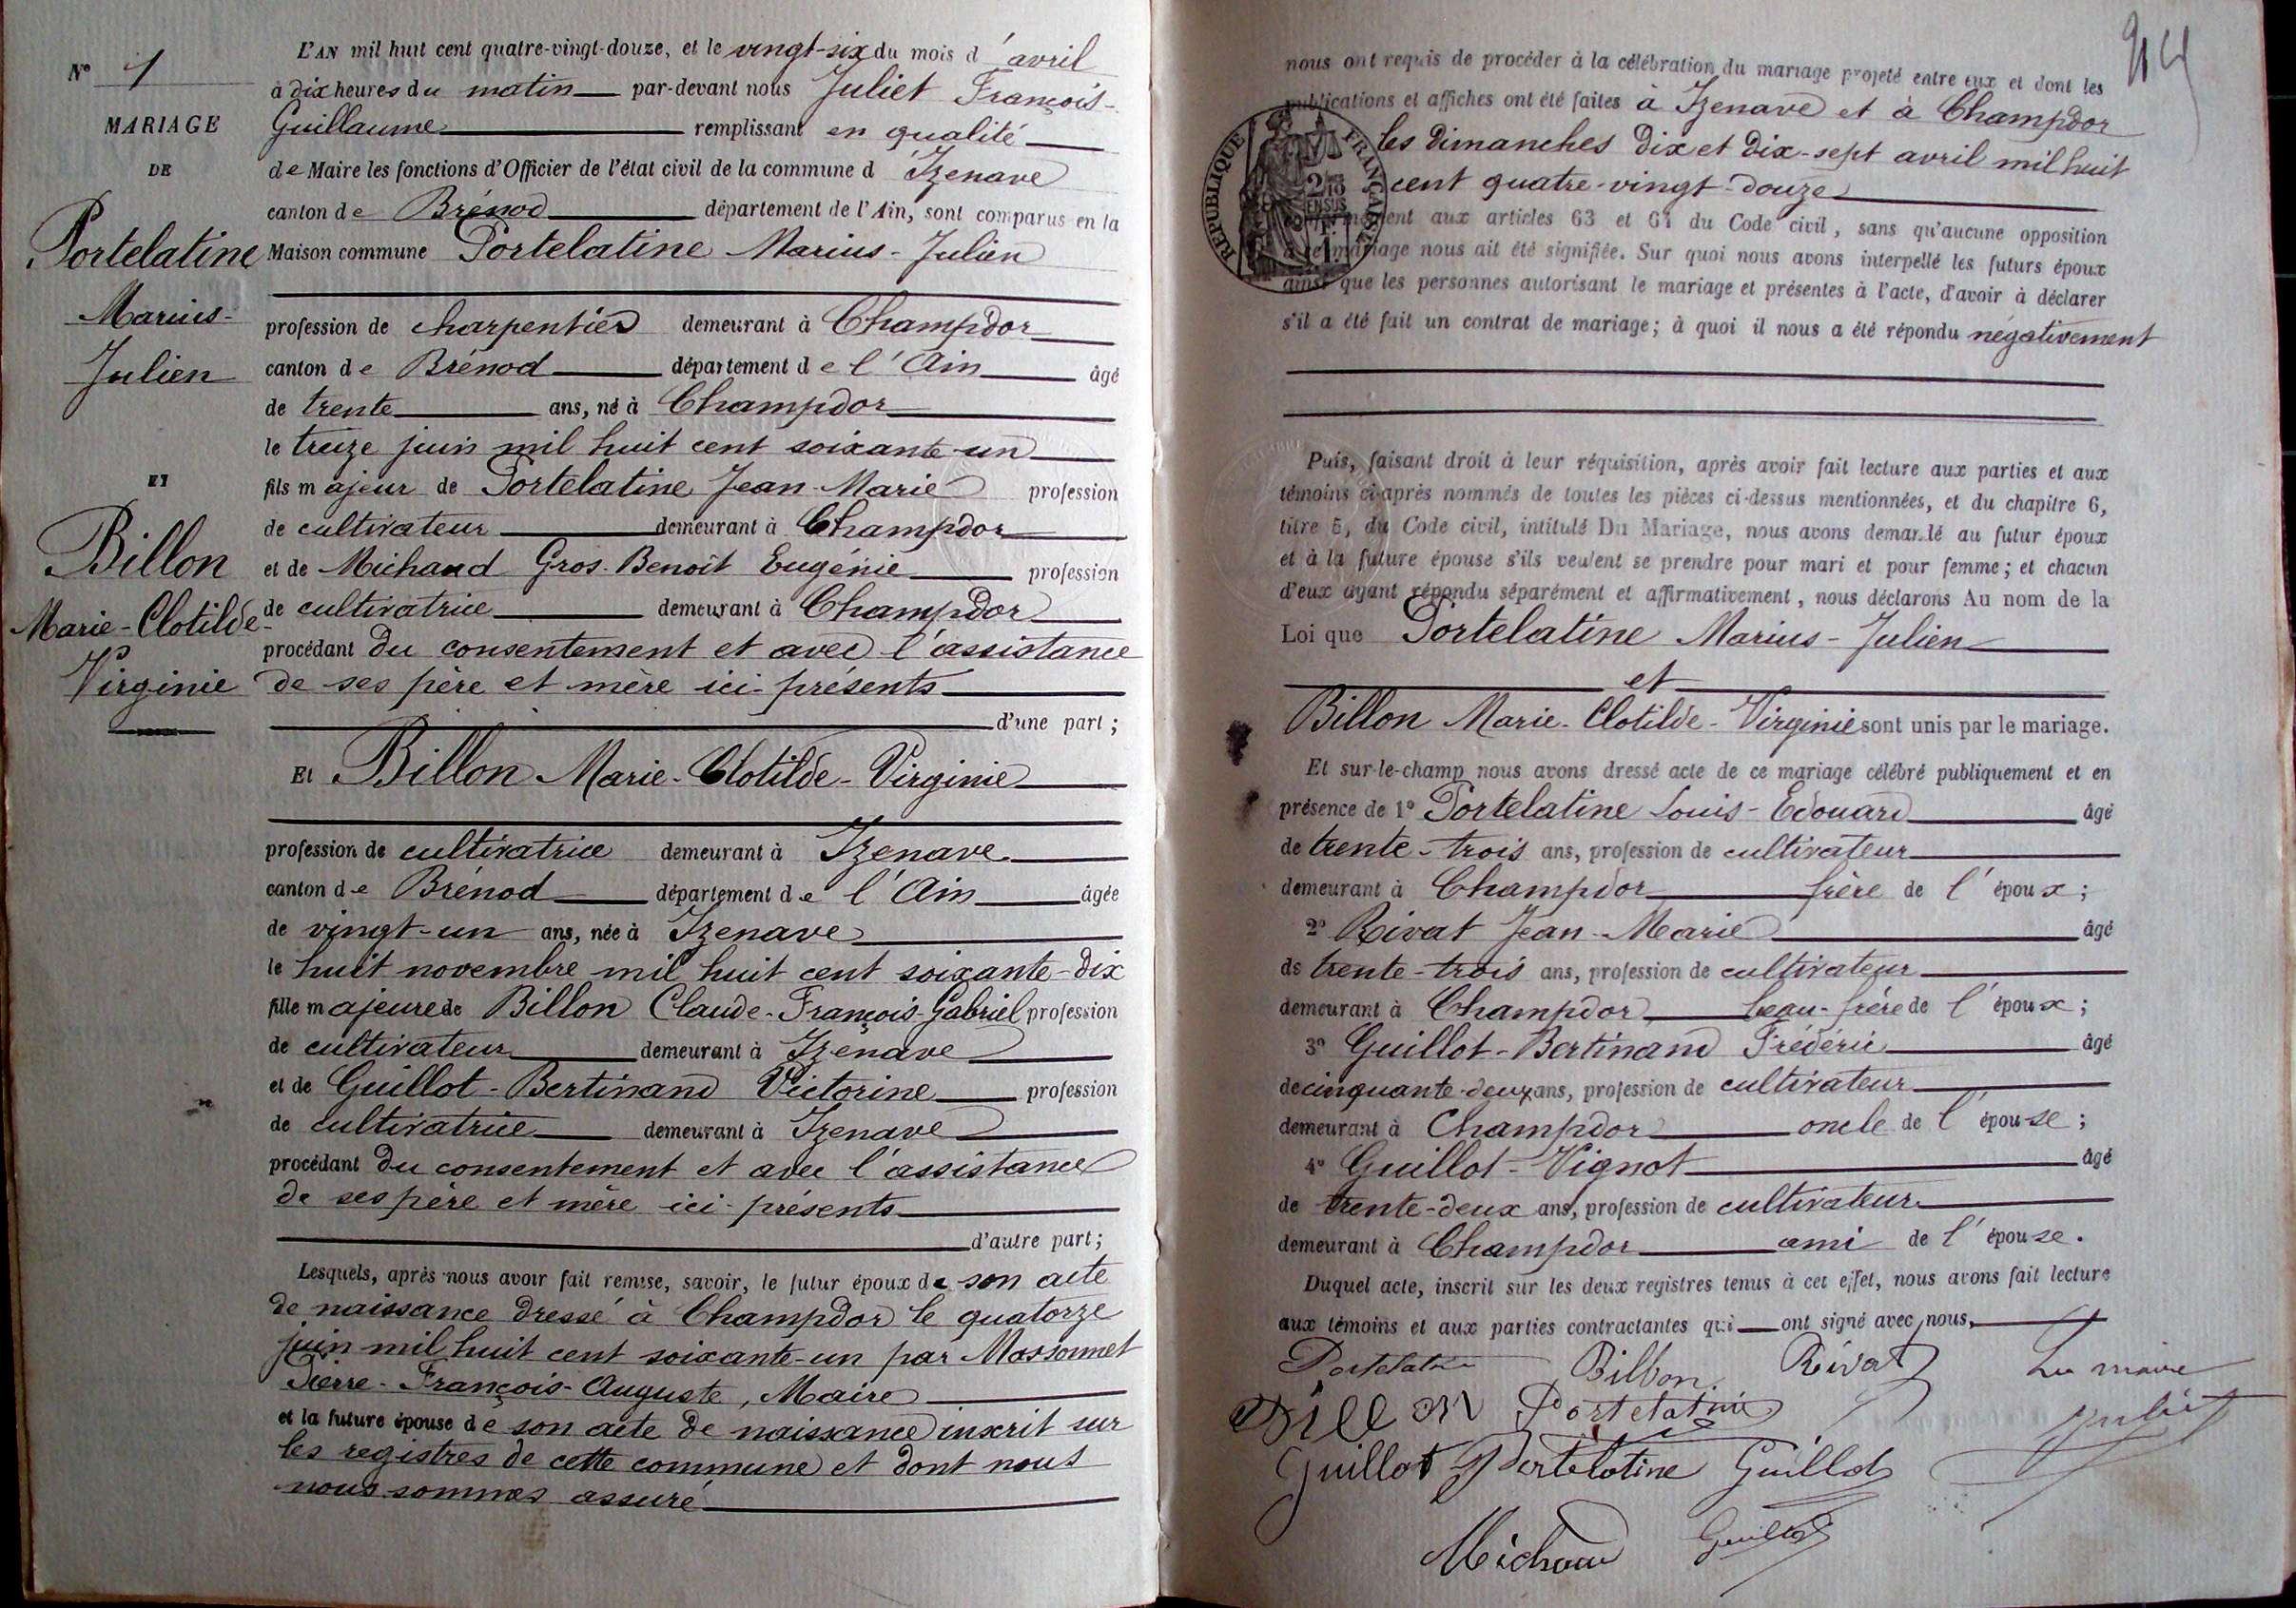 N° 1
MARIAGE
DE
Portelatine
Marius-
Julien
ET
Billon
Marie-Clotilde-
Virginie
L'AN mil huit cent quatre-vingt-douze, et le vingt-six du mois d'avril
à dix heures du matin par-devant nous Juliet François-
Guillaume remplissant en qualité
de Maire les fonctions d'Officier de l'état civil de la commune d'Izenave
canton de Brénod département de l'Ain, sont comparus en la
Maison commune Portelatine Marius-Julien
profession de charpentier demeurant à Champdor
canton de Brénod département de l'Ain âgé
de trente ans, né à Champdor
le treize juin mil huit cent soixante-un
fils majeur de Portelatine Jean-Marie profession
de cultivateur demeurant à Champdor
et de Michaud Gros-Benoît Eugénie profession
de cultivatrice demeurant à Champdor
procédant du consentement et avec l'assistance
de ses père et mère ici-présents
d'une part ;
Et Billon Marie-Clotilde-Virginie
profession de cultivatrice demeurant à Izenave
canton de Brénod département de l'Ain âgée
de vingt-un ans, née à Izenave
le huit novembre mil huit cent soixante-dix
fille majeure de Billon Claude-François-Gabriel profession
de cultivateur demeurant à Izenave
et de Guillot-Bertinand Victorine profession
de cultivatrice demeurant à Izenave
procédant du consentement et avec l'assistance
de ses père et mère ici-présents
d'autre part ;
Lesquels, après nous avoir fait remise, savoir, le futur époux de son acte
de naissance dressé à Champdor le quatorze
juin mil huit cent soixante-un par Massonnet
Pierre-François-Auguste, Maire
et la future épouse de son acte de naissance inscrit sur
les registres de cette commune et dont nous
nous sommes assuré
nous ont requis de procéder à la célébration du mariage projeté entre eux et dont les
publications et affiches ont été faites à Izenave et à Champdor
les dimanches dix et dix-sept avril mil huit
cent quatre-vingt-douze
RÉPUBLIQUE FRANÇAISE
conformément aux articles 63 et 64 du Code civil, sans qu'aucune opposition
à ce mariage nous ait été signifiée. Sur quoi nous avons interpellé les futurs époux
ainsi que les personnes autorisant le mariage et présentes à l'acte, d'avoir à déclarer
s'il a été fait un contrat de mariage; à quoi il nous a été répondu négativement
Puis, faisant droit à leur réquisition, après avoir fait lecture aux parties et aux
témoins ci-après nommés de toutes les pièces ci-dessus mentionnées, et du chapitre 6,
titre 5, du Code civil, intitulé Du Mariage, nous avons demandé au futur époux
et à la future épouse s'ils veulent se prendre pour mari et pour femme; et chacun
d'eux ayant répondu séparément et affirmativement, nous déclarons Au nom de la
Loi que Portelatine Marius-Julien
et
Billon Marie-Clotilde-Virginie sont unis par le mariage.
Et sur-le-champ nous avons dressé acte de ce mariage célébré publiquement et en
présence de 1° Portelatine Louis-Edouard âgé
de trente-trois ans, profession de cultivateur
demeurant à Champdor frère de l'époux ;
2° Rivat Jean-Marie âgé
de trente-trois ans, profession de cultivateur
demeurant à Champdor beau-frère de l'époux ;
3° Guillot-Bertinand Frédéric âgé
de cinquante-deux ans, profession de cultivateur
demeurant à Champdor oncle de l'épouse ;
4° Guillot-Vignot âgé
de trente-deux ans, profession de cultivateur
demeurant à Champdor ami de l'épouse.
Duquel acte, inscrit sur les deux registres tenus à cet effet, nous avons fait lecture
aux témoins et aux parties contractantes qui ont signé avec nous,
Portelatine Billon Rivat Le maire
Billon Portelatine Juliet
Guillot Portelatine Guillot
Michaud Guillot